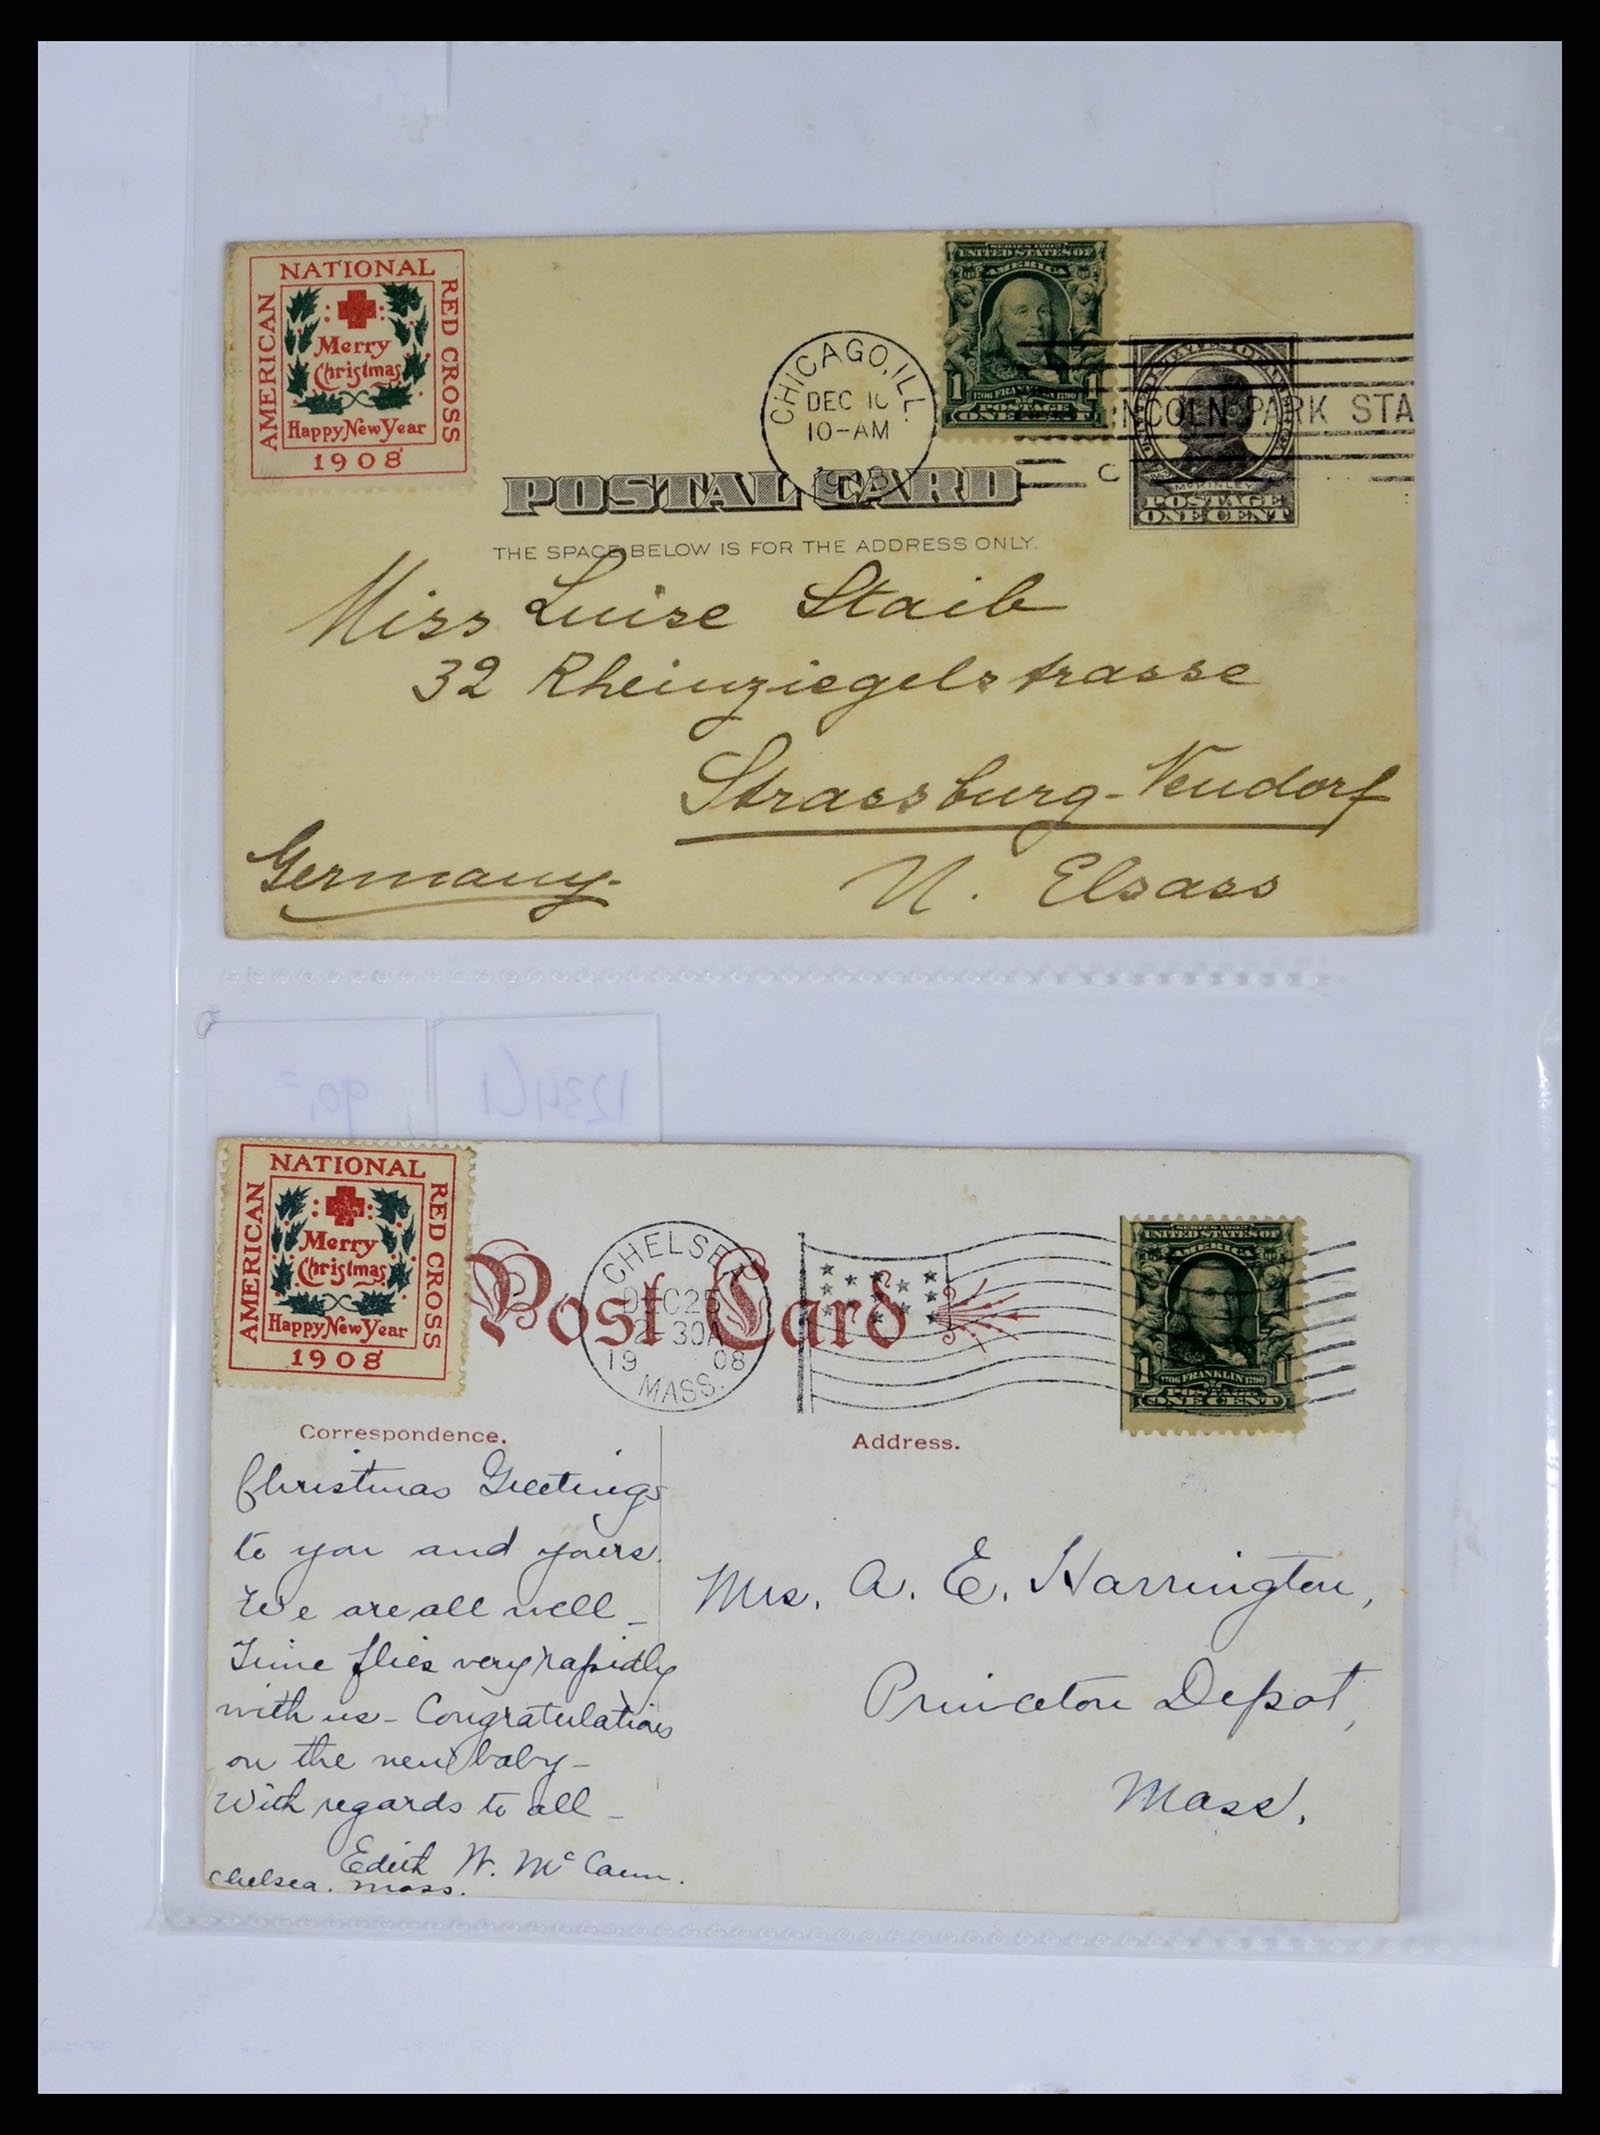 NATIONAL
AMERICAN
RED CROSS
Merry
Christmas
Happy New Year
1908
CHICAGO, ILL.
DEC 10
10-AM
SERIES 1902
UNITED STATES OF
AMERICA
1 1
1706 FRANKLIN 1790
POSTAGE
ONE CENT
NCOLN PARK STA
C
McKINLEY
POSTAGE
ONE CENT
POSTAL CARD
THE SPACE BELOW IS FOR THE ADDRESS ONLY.
Miss Luise Staib
32 Rheinziegelstrasse
Strassburg-Neudorf
Germany.
N. Elsass
1234
90,=
NATIONAL
AMERICAN
RED CROSS
Merry
Christmas
Happy New Year
1908
Post Card
CHELSEA
DEC 25
2-30A
19 08
MASS.
SERIES 1902
UNITED STATES OF
AMERICA
1 1
1706 FRANKLIN 1790
POSTAGE
ONE CENT
Correspondence.
Address.
Christmas Greetings
to you and yours.
We are all well –
Time flies very rapidly
with us – Congratulations
on the new baby –
With regards to all –
Edith W. McCann.
Chelsea. Mass.
Mrs. A. E. Harrington,
Princeton Depot,
Mass.